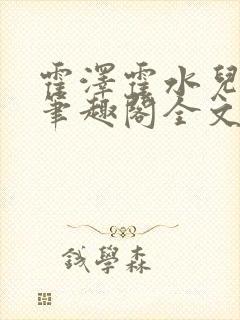 霍澤霍水兒
筆趣閣全文
錢學森